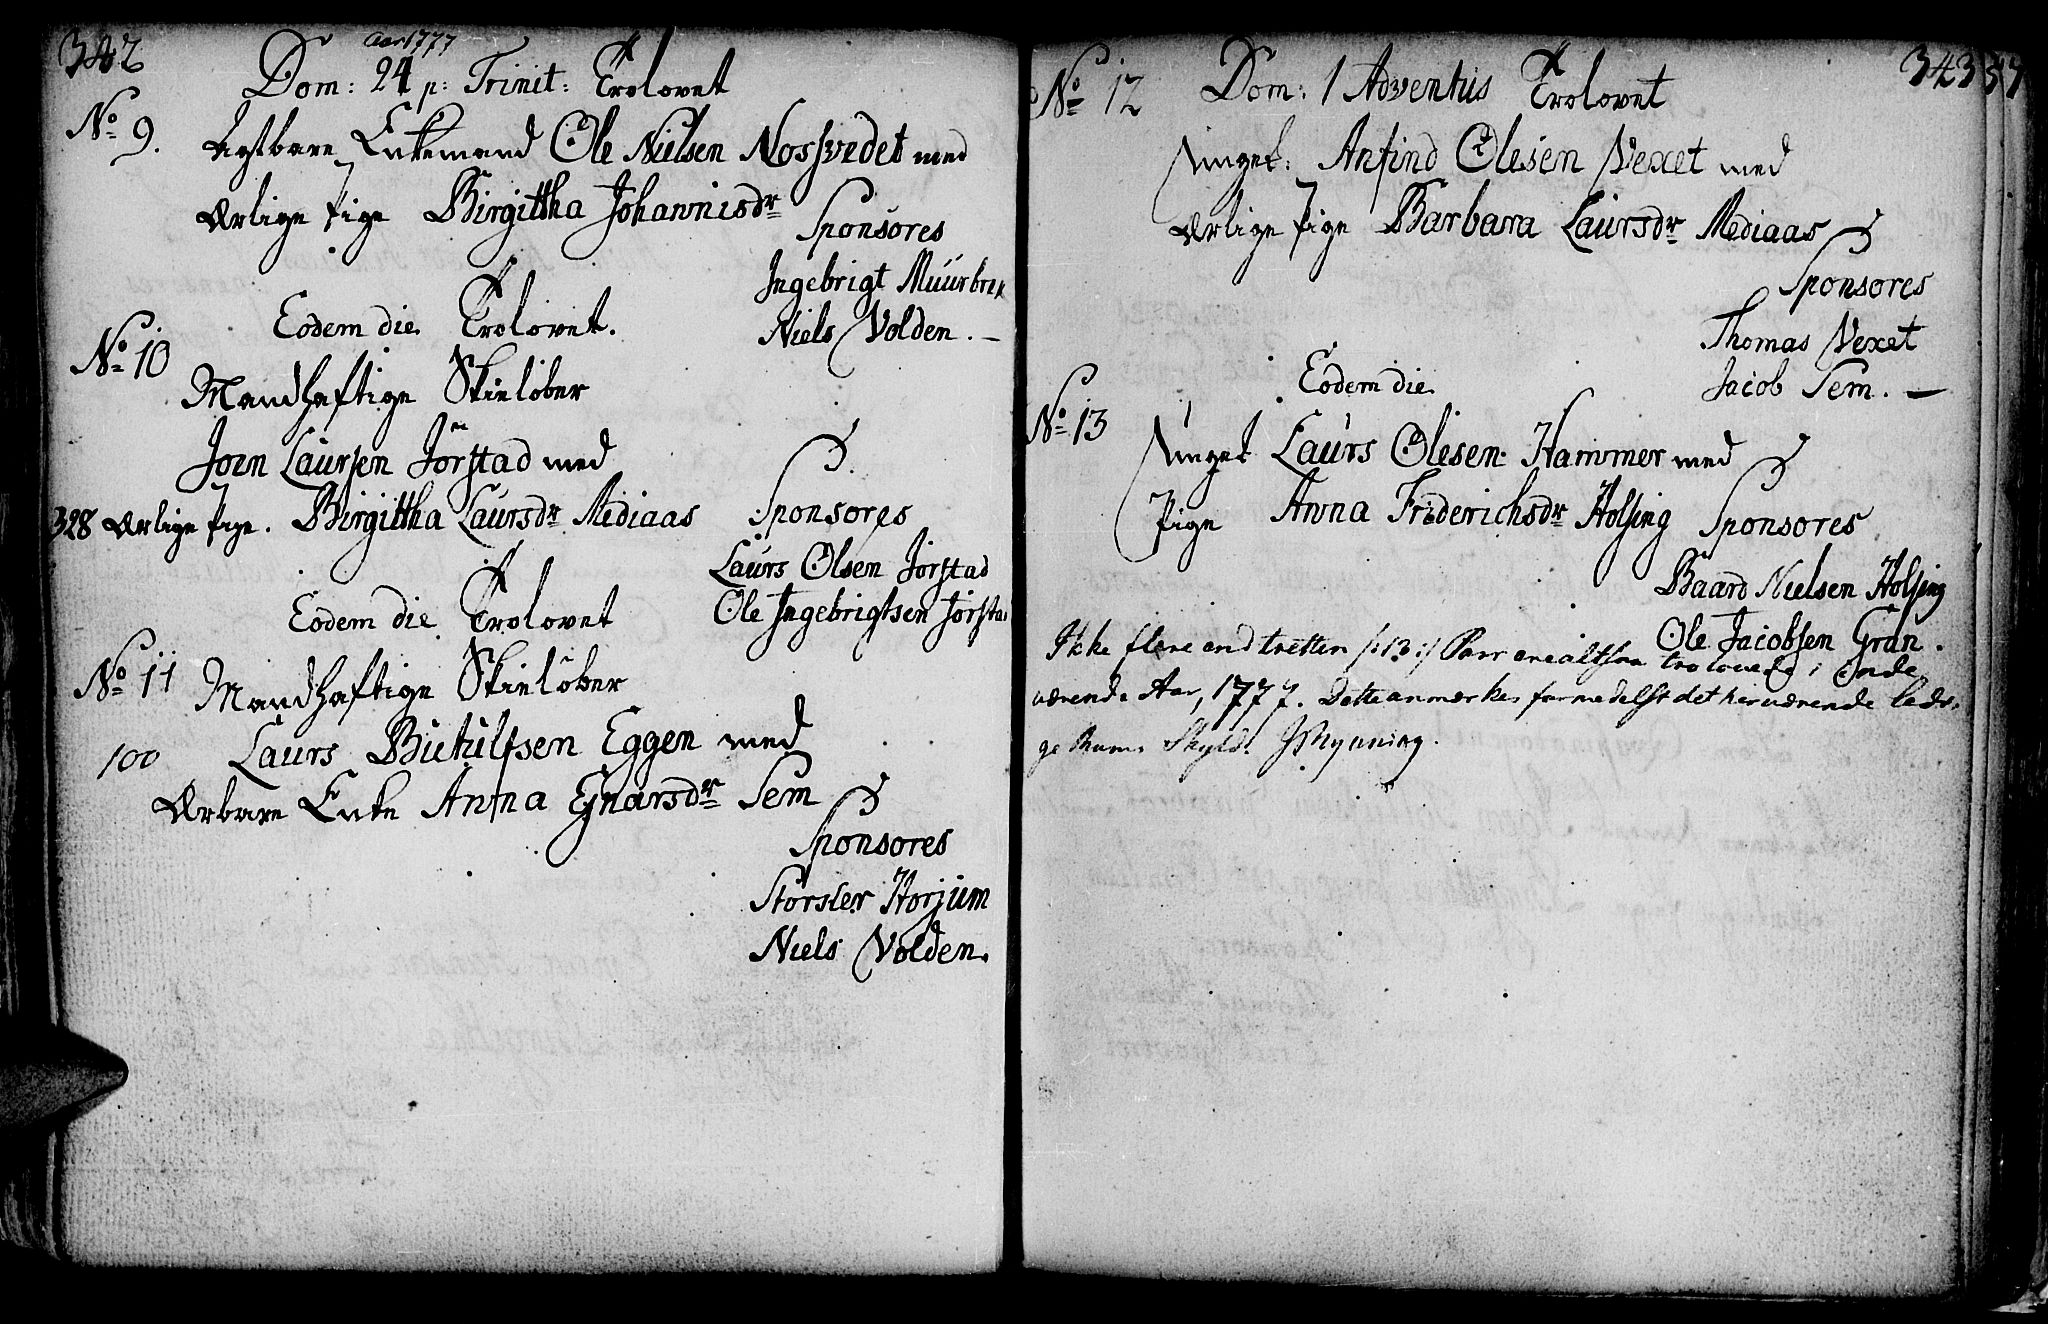 342
Aar 1777
Dom: 24 p: Trinit: Trolovet
No 9. Agtbare Enkemand Ole Nielsen Nossvedet med
Ærlige Pige Birgittha Johannisdr
Sponsores
Ingebrigt Muurbrek
Niels Volden. —
Eodem die Trolovet.
No 10
Mandhaftige Skieløber
Joen Laursen Jørstad med
328 Ærlige Pige. Birgittha Laursdr Mediaas
Sponsores
Laurs Olsen Jørstad
Ole Ingebrigtsen Jørstad
Eodem die Trolovet
No 11 Mandhaftige Skieløber
100 Laurs Biehulfsen Eggen med
Ærbare Enke Anna Ejnarsdr Sem
Sponsores
Storsler Horjum
Niels Volden.
343
57
No 12 Dom: 1 Adventus Trolovet
Unget: Anfind Olesen Vexet med
Ærlige Pige Barbara Laursdr Mediaas
Sponsores
Thomas Vexet
Jacob Sem. —
Eodem die
No 13
Unget Laurs Olesen Hammer med
Pige Anna Friderichsdr Holsing
Sponsores
Baard Nielsen Holsing
Ole Jacobsen Gran.
Ikke flere end tretten /: 13 :/ Parr ere altsaa trolovede i inde
værende Aar, 1777. Dette anmærkes formedelst det herværende ledi-
ge Rums Skyld.